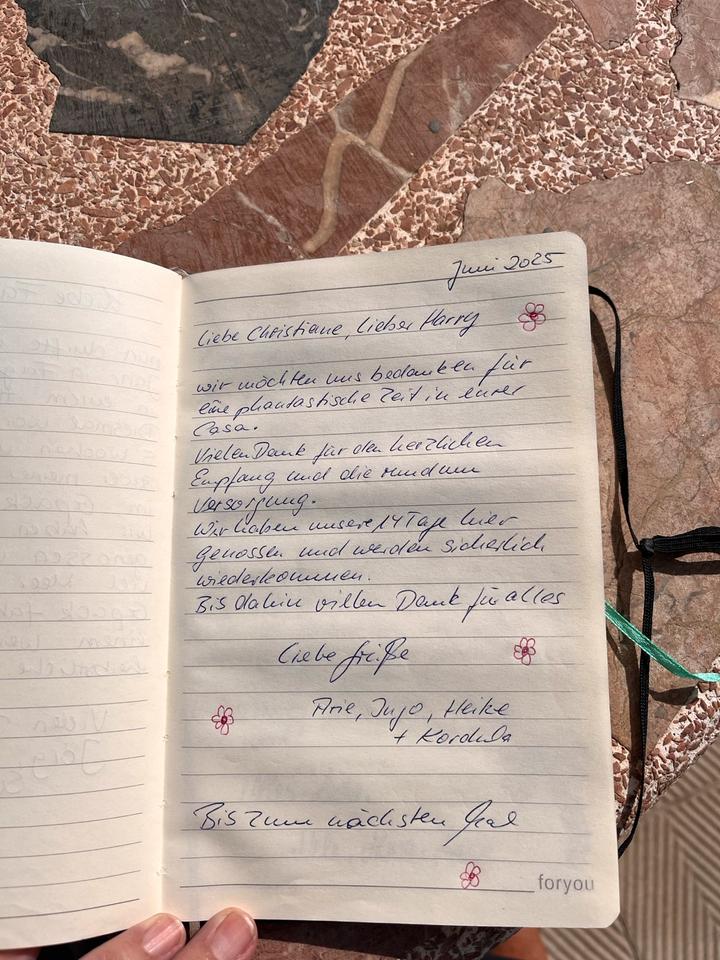 Juni 2025
Liebe Christiane, Lieber Harry
wir möchten uns bedanken für
eine phantastische Zeit in eurer
Casa.
Vielen Dank für den herzlichen
Empfang und die rundum
Versorgung.
Wir haben unsere 14 Tage hier
genossen und werden sicherlich
wiederkommen.
Bis dahin vielen Dank für alles
Liebe Grüße
Arie, Ingo, Heike
+ Kordula
Bis zum nächsten Mal
foryou